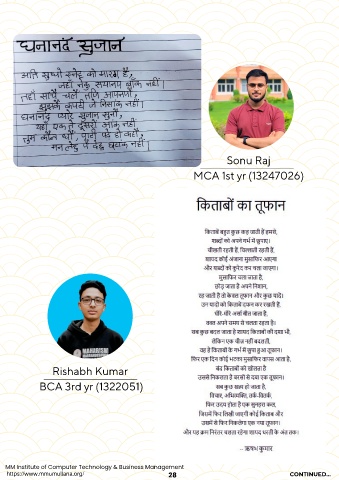 घनानंद सुजान
अति सूधो स्नेह को मारग है,
जहाँ नेकु सयानप बाँक नहीं।
तहाँ साचे चलैं तजि आपनपौ,
झझकैं कपटी जे निसांक नहीं।
घनानंद प्यारे सुजान सुनो,
यहाँ एक ते दूसरो आंक नहीं
तुम कौन धौं पाटी पढ़े हो कहौ,
मन लेहु पै देहु छटांक नहीं।
Sonu Raj
MCA 1st yr (13247026)
किताबों का तूफान
किताबें बहुत कुछ कह जाती हैं हमसे,
शब्दों को अपने गर्भ में छुपाए।
चीखती रहती हैं, चिल्लाती रहती हैं,
शायद कोई अंजाना मुसाफिर आएगा
और शब्दों को कुरेद कर चला जाएगा।
मुसाफिर चला जाता है,
छोड़ जाता है अपने निशान,
रह जाती है तो केवल तूफान और कुछ यादें।
उन यादों को किताबें दफन कर रखती हैं,
धीरे-धीरे अर्सा बीत जाता है,
वक्त अपने समय से चलता रहता है।
सब कुछ बदल जाता है शायद किताबों की दशा भी,
लेकिन एक चीज नहीं बदलती,
वह है किताबों के गर्भ में छुपा हुआ तूफान।
फिर एक दिन कोई भटका मुसाफिर वापस आता है,
बंद किताबों को खोलता है
उससे निकलता है बरसों से दबा एक तूफान।
सब कुछ खत्म हो जाता है,
विचार, अभिव्यक्ति, तर्क-वितर्क,
फिर उदय होता है एक सुनहरा कल,
जिसमें फिर लिखी जाएगी कोई किताब और
उसमें से फिर निकलेगा एक नया तूफान।
और यह क्रम निरंतर चलता रहेगा शायद धरती के अंत तक।
– ऋषभ कुमार
Rishabh Kumar
BCA 3rd yr (1322051)
MM Institute of Computer Technology & Business Management
https://www.mmumullana.org/
28
CONTINUED...